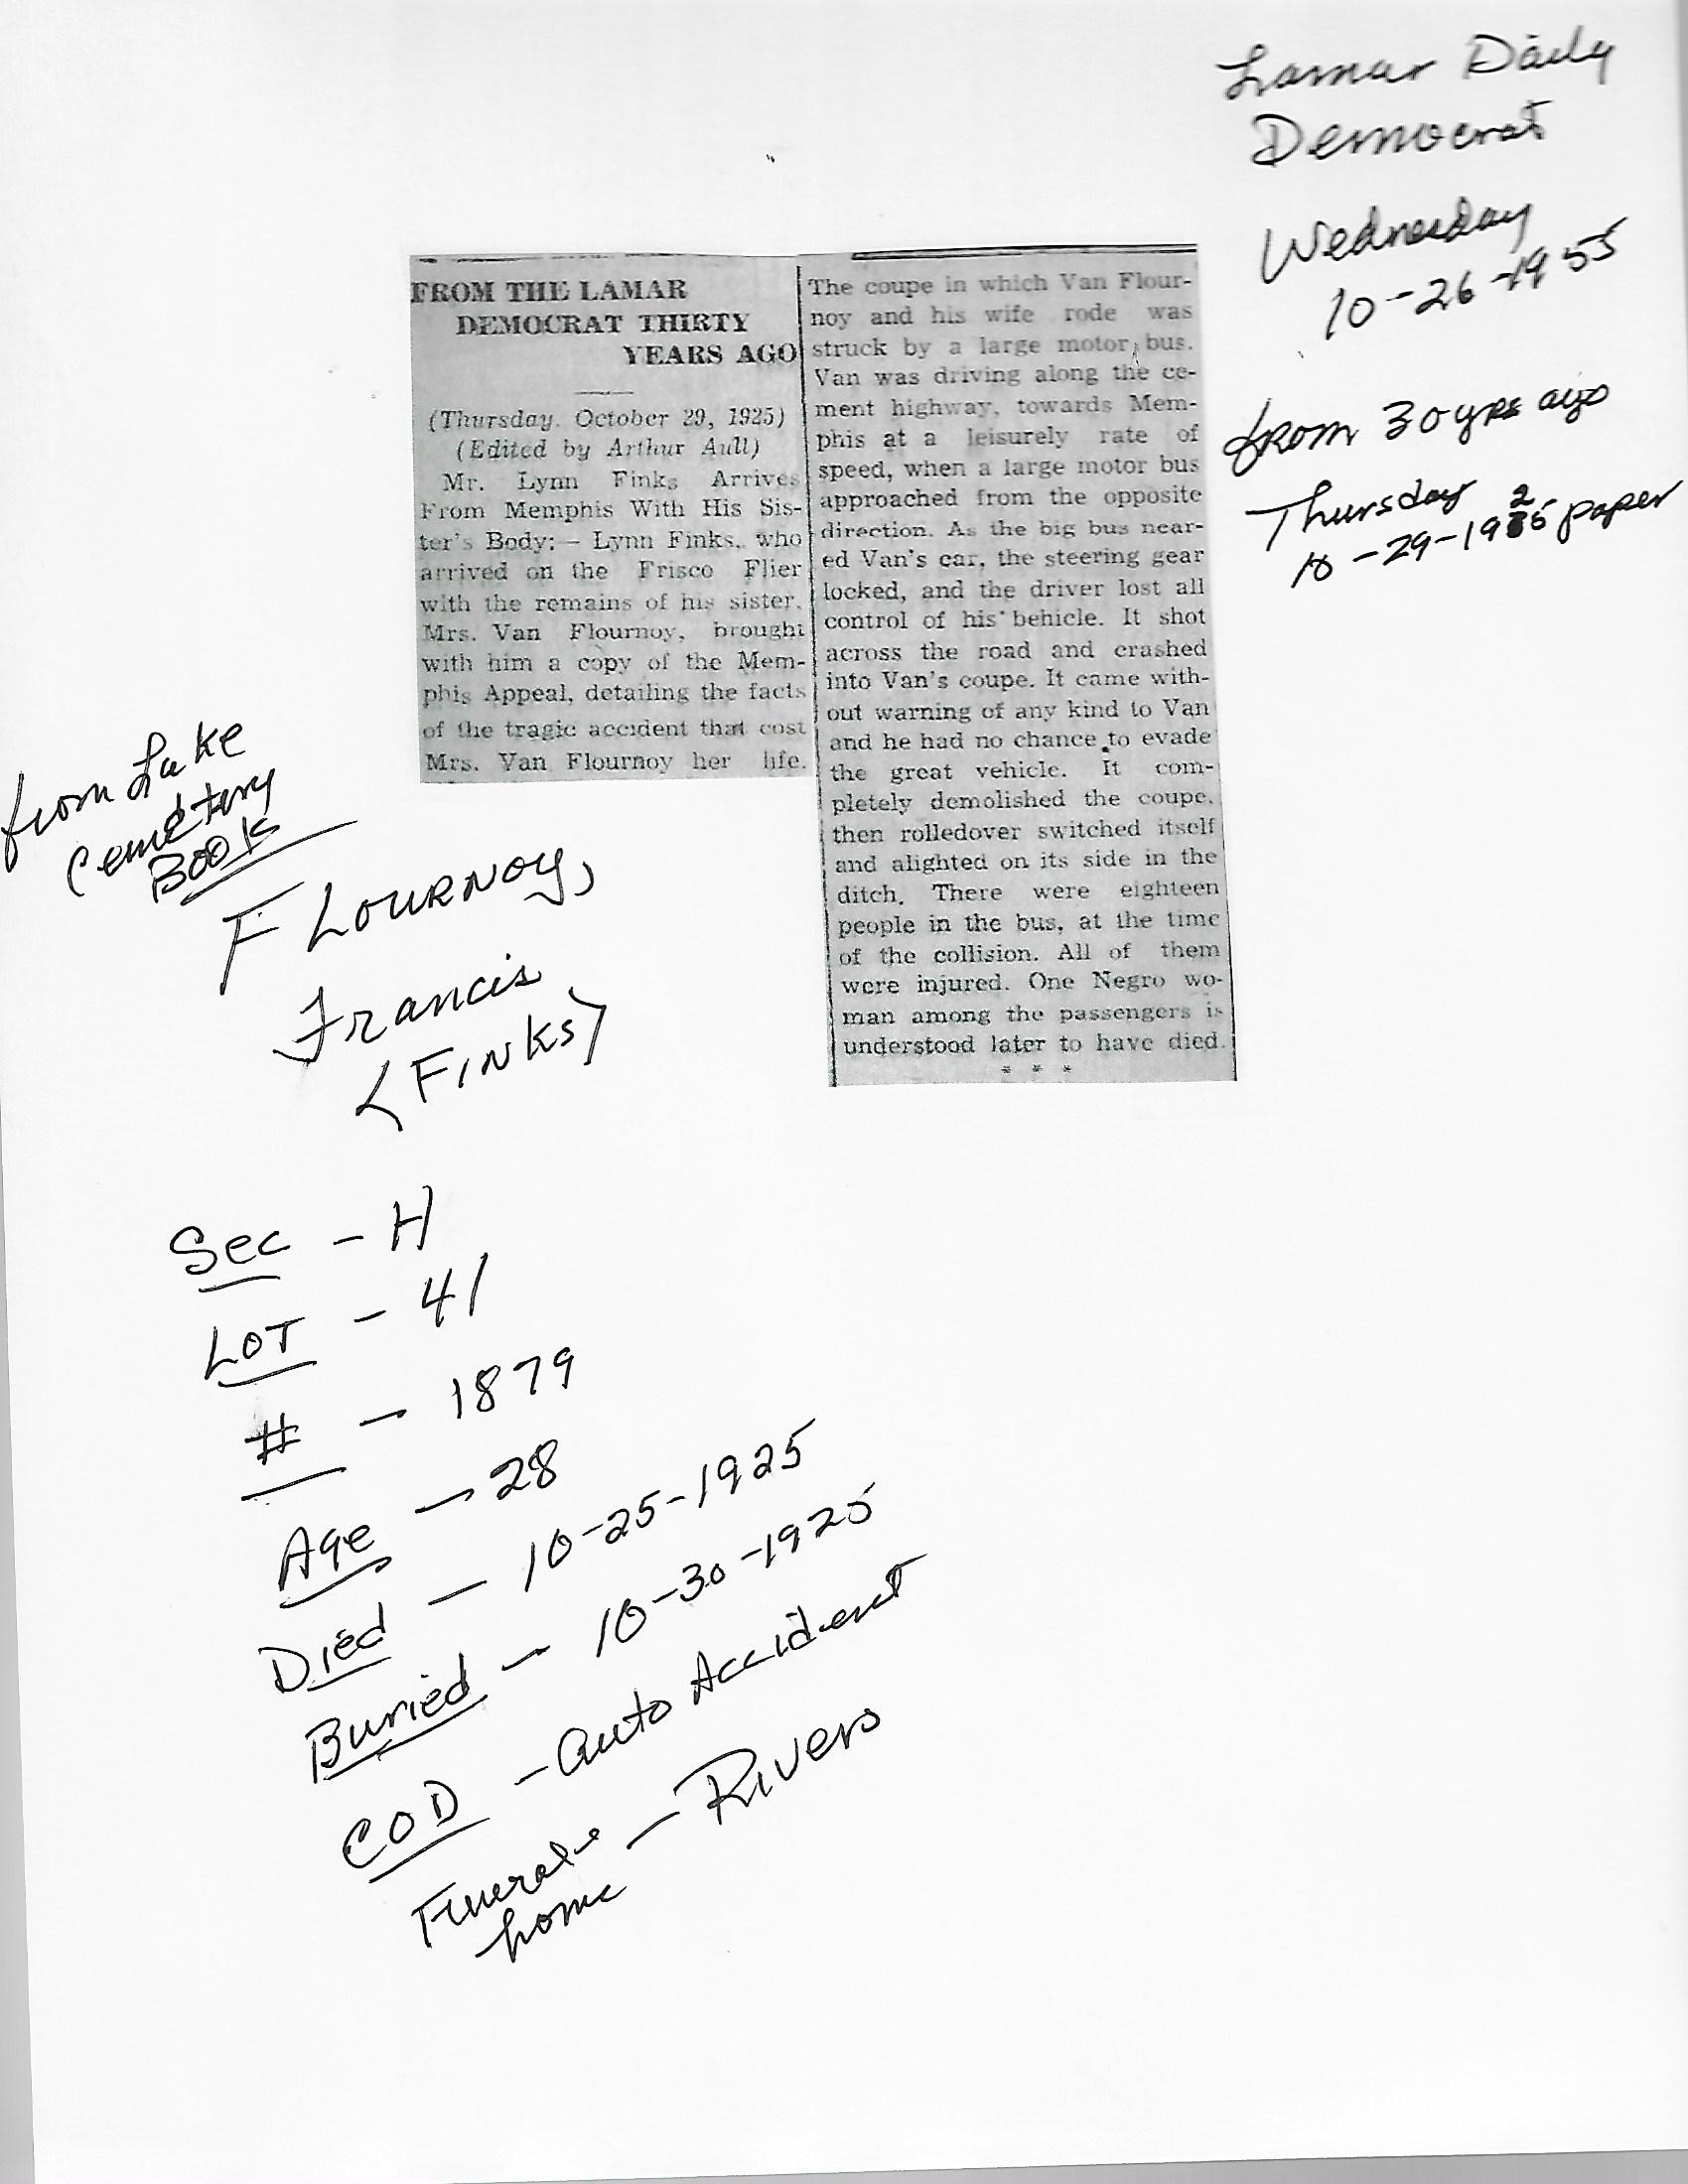 Lamar Daily
Democrat
Wednesday
10-26-1955
from 30 yrs ago
Thursday
10-29-1925 paper
FROM THE LAMAR
DEMOCRAT THIRTY
YEARS AGO
(Thursday. October 29, 1925)
(Edited by Arthur Aull)
Mr. Lynn Finks Arrives
From Memphis With His Sis-
ter's Body:- Lynn Finks, who
arrived on the Frisco Flier
with the remains of his sister,
Mrs. Van Flournoy, brought
with him a copy of the Mem-
phis Appeal, detailing the facts
of the tragic accident that cost
Mrs. Van Flournoy her life.
The coupe in which Van Flour-
noy and his wife rode was
struck by a large motor bus.
Van was driving along the ce-
ment highway, towards Mem-
phis at a leisurely rate of
speed, when a large motor bus
approached from the opposite
direction. As the big bus near-
ed Van's car, the steering gear
locked, and the driver lost all
control of his behicle. It shot
across the road and crashed
into Van's coupe. It came with-
out warning of any kind to Van
and he had no chance to evade
the great vehicle. It com-
pletely demolished the coupe,
then rolledover switched itself
and alighted on its side in the
ditch. There were eighteen
people in the bus, at the time
of the collision. All of them
were injured. One Negro wo-
man among the passengers is
understood later to have died.
* * *
from Lake
Cemetery
Book
FLOURNOY,
Francis
(FINKS)
Sec - H
LOT - 41
# - 1879
Age - 28
Died - 10-25-1925
Buried - 10-30-1925
COD - Auto Accident
Funeral - Rivers
home